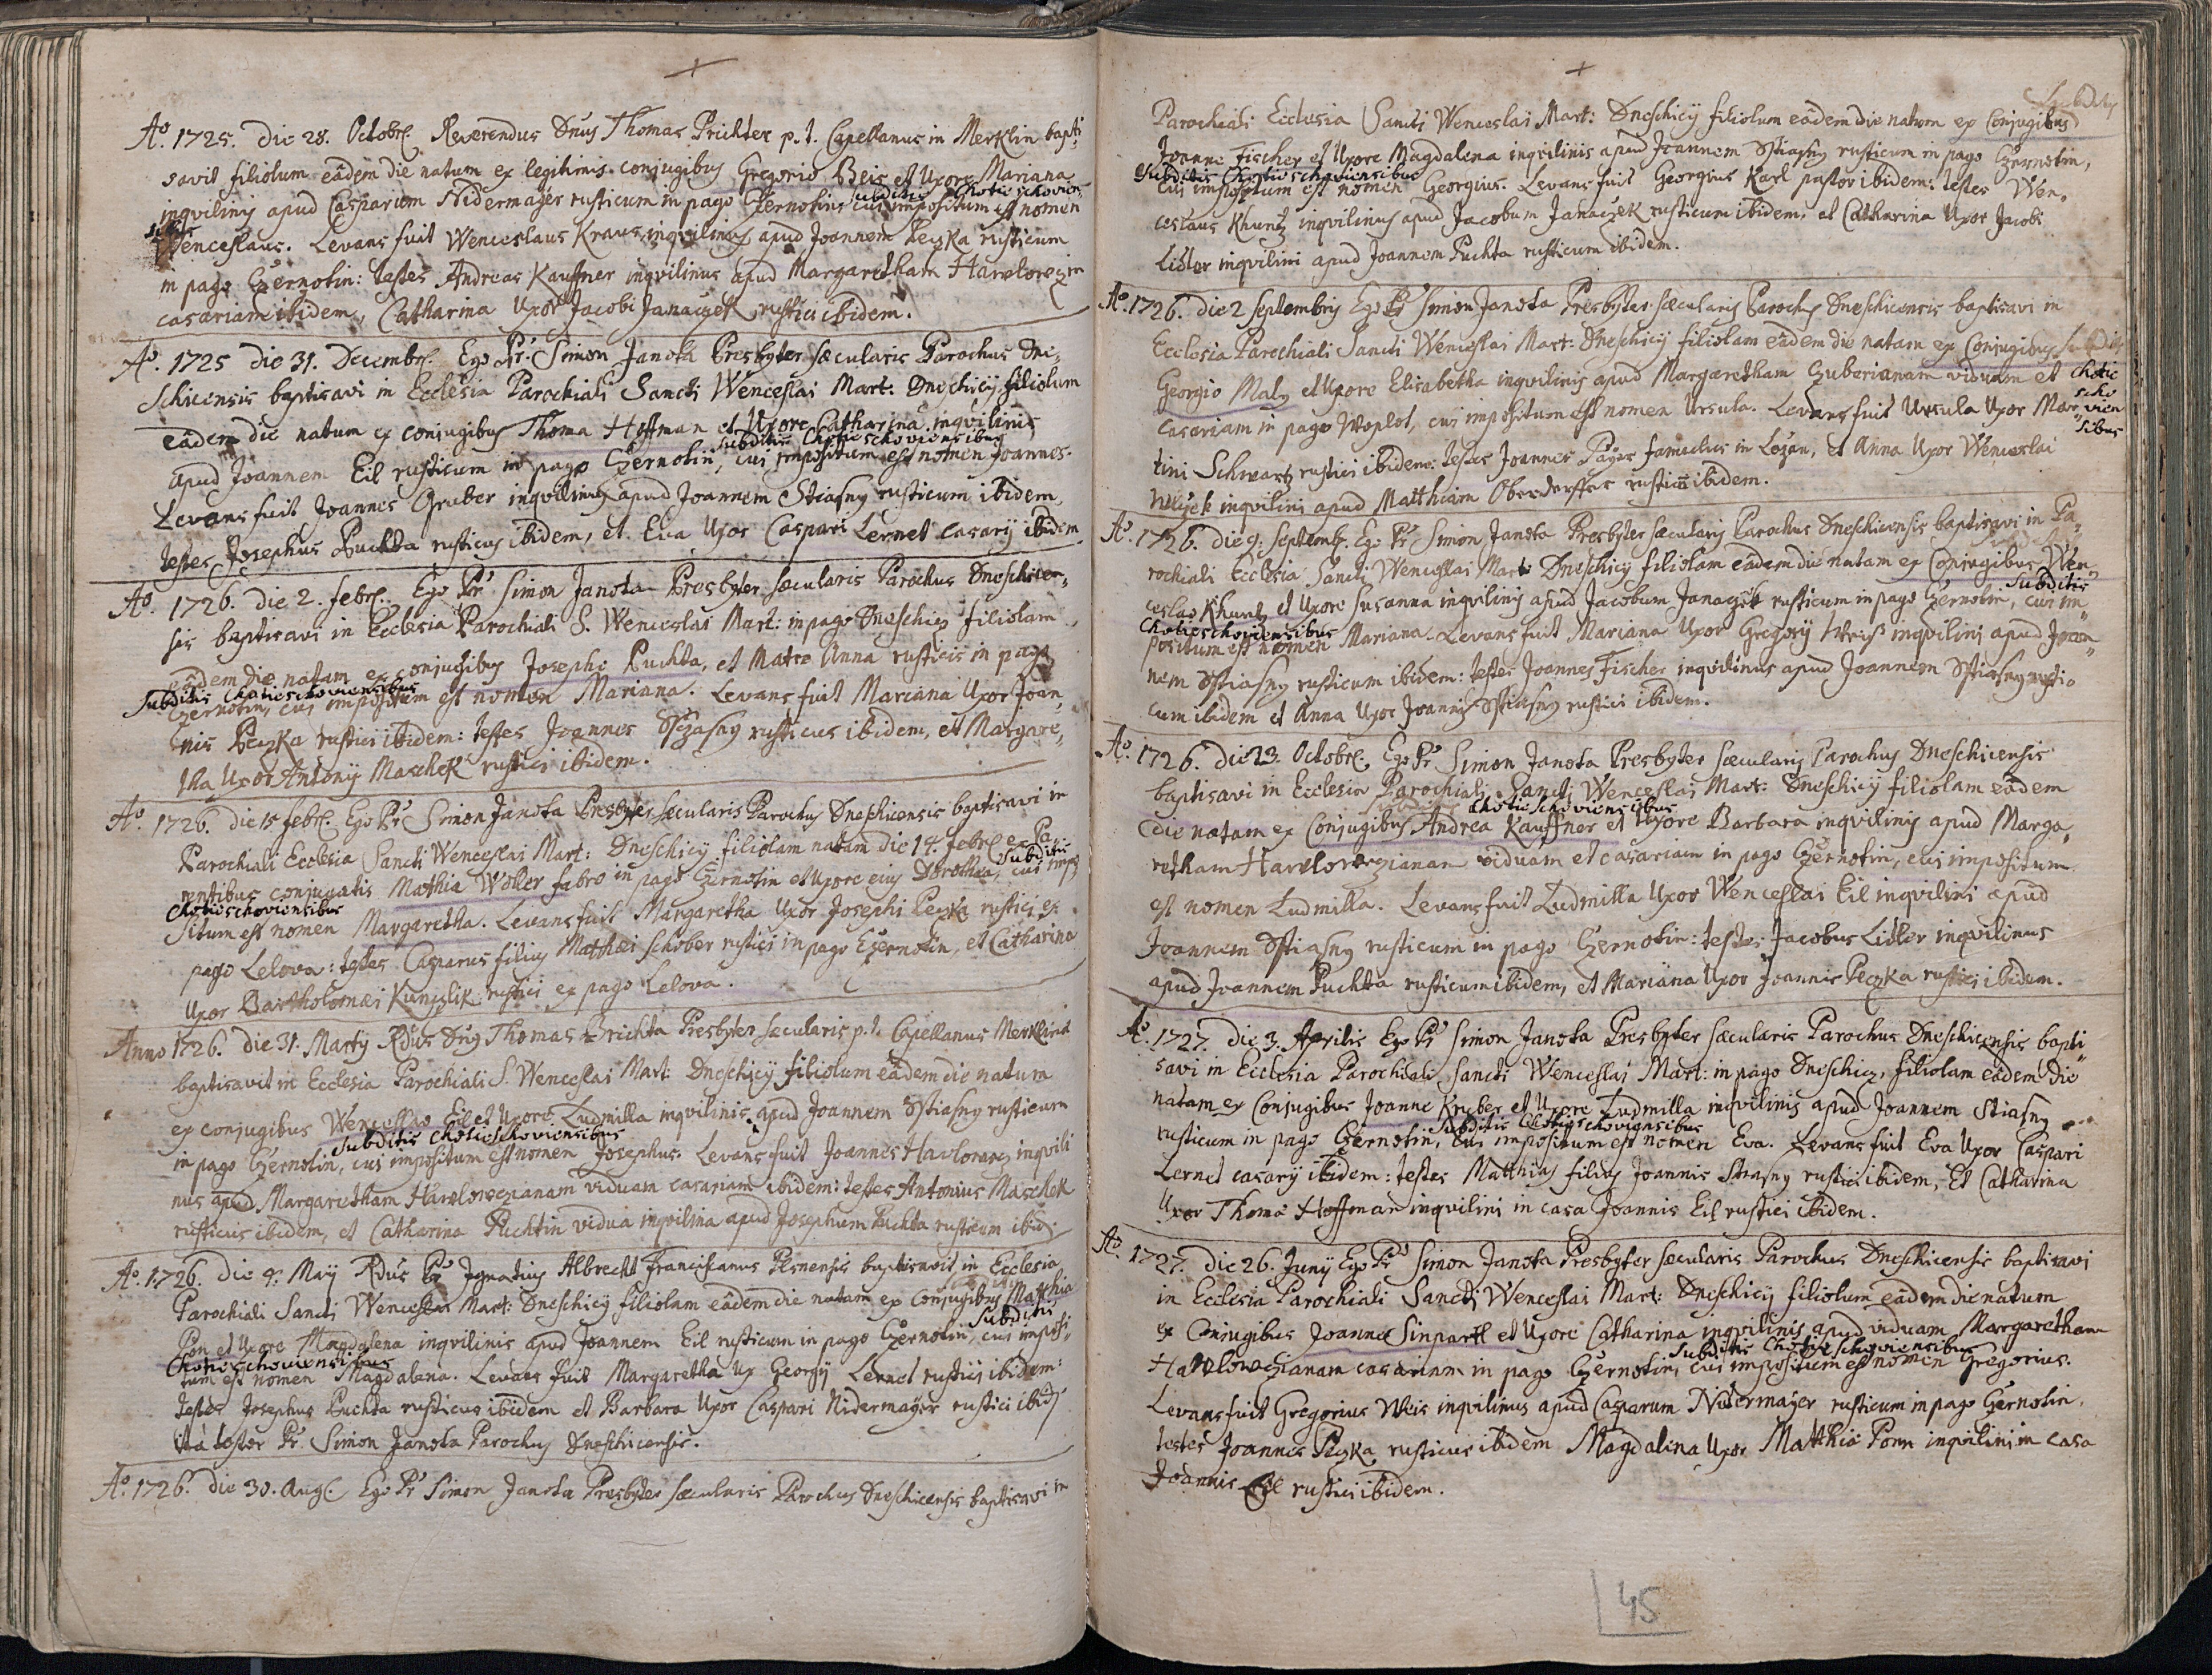 Aº. 1725. die 28. Octobr. Reverendus Dnus Thomas Prichter p. t. Capellanus in Merklin bapti-
savit filiolum eâdem die natum ex legitimis conjugibus Gregorio Beis et Uxore Mariana
subditis Chotieschovien-
inqvilinis apud Casparum Nidermaÿer rusticum in pago Czernotin, cui impositum est nomen
sibus
Wenceslaus. Levans fuit Wenceslaus Kraus inqvilinus apud Joannem Peczka rusticum
in pago Czernotin: testes Andreas Kauffner inqvilinus apud Margaretham Hawlowecz in
casariam ibidem, Catharina Uxor Jacobi Janaczek rustici ibidem.
Aº. 1725 die 31. Decembr. Ego Pr. Simon Janota Presbyter sæcularis Parochus Dne-
schicensis baptisavi in Ecclesia Parochiali Sancti Wenceslai Mart: Dneschicÿ filiolum
eâdem die natum ex conjugibus Thoma Hoffman et Uxore Catharina inqvilinis
subditis Chotieschoviensibus
apud Joannem Eil rusticum in pago Czernotin, cui impositum est nomen Joannes.
Levans fuit Joannes Gruber inqvilinus apud Joannem Stiasny rusticum ibidem,
testes Josephus Puchta rusticus ibidem, et Eva Uxor Caspari Lernet casarÿ ibidem
Aº. 1726. die 2. febr. Ego Pr Simon Janota Presbyter sæcularis Parochus Dneschicen-
sis baptisavi in Ecclesia Parochiali S. Wenceslai Mart: in pago Dneschicz filiolam
eâdem die natam ex conjugibus Josepho Puchta, et Matre Anna rusticis in pago
Subditis Chotieschoviensibus
Czernotin, cui impositum est nomen Mariana. Levans fuit Mariana Uxor Joan-
nis Peczka rustici ibidem: testes Joannes Stiasny rusticus ibidem, et Margare-
tha Uxor Antonÿ Maschek rustici ibidem.
Aº. 1726. die 15 febr. Ego Pr Simon Janota Presbyter sæcularis Parochus Dneschicensis baptisavi in
Parochiali Ecclesia Sancti Wenceslai Mart: Dneschicÿ filiolam natam die 14. febr. ex Pa-
subditis
rentibus conjugatis Mathia Woller fabro in pago Czernotin et Uxore eius Dorothea, cui impo
Chotieschoviensibus
situm est nomen Margaretha. Levans fuit Margaretha Uxor Josephi Peczka rustici ex
pago Lelova: testes Casparus filius Matthæi Schober rustici in pago Czernotin, et Catharina
Uxor Bartholomæi Kunczlik rustici ex pago Lelova.
Anno 1726. die 31. Martÿ Rdus Dnus Thomas Brichta Presbyter sæcularis p. t. Capellanus Merklini
baptisavit in Ecclesia Parochiali S. Wenceslai Mart: Dneschicÿ filiolum eâdem die natum
ex conjugibus Wenceslao Eil et Uxore Ludmilla inqvilinis apud Joannem Stiasny rusticum
subditis Chotieschoviensibus
in pago Czernotin, cui impositum est nomen Josephus. Levans fuit Joannes Havlowecz inqvili
nus apud Margaretham Hawlowczianam viduam casariam ibidem: testes Antonius Maschek
rusticus ibidem, et Catharina Puchtin vidua inqvilina apud Josephum Puchta rusticum ibid.
Aº. 1726. die 4. Maÿ Rdus Pr Ignatius Albrecht Franciscanus Plsnensis baptisavit in Ecclesia
Parochiali Sancti Wenceslai Mart: Dneschicÿ filiolam eâdem die natam ex conjugibus Matthia
Subditis
Pon et Uxore Magdalena inqvilinis apud Joannem Eil rusticum in pago Czernotin, cui imposi-
Chotieschoviensibus
tum est nomen Magdalena. Levans fuit Margaretha Ux Georgÿ Lernet rustici ibidem:
testes Josephus Puchta rusticus ibidem et Barbara Uxor Caspari Nidermaÿer rustici ibid.
ita testor Pr. Simon Janota Parochus Dneschicensis.
Aº. 1726. die 30. Aug. Ego Pr Simon Janota Presbyter sæcularis Parochus Dneschicensis baptisavi in
Subditis
Parochiali Ecclesia Sancti Wenceslai Mart: Dneschicÿ filiolum eâdem die natum ex Conjugibus
Joanne Fischer et Uxore Magdalena inqvilinis apud Joannem Stiasny rusticum in pago Czernotin,
Subditis Chotieschoviensibus
cui impositum est nomen Georgius. Levans fuit Georgius Karl pastor ibidem: testes Wen-
ceslaus Khuntz inqvilinus apud Jacobum Janaczek rusticum ibidem, et Catharina Uxor Jacobi
Lidler inqvilini apud Joannem Puchta rusticum ibidem.
Aº. 1726. die 2 Septembris Ego Pr Simon Janota Presbyter sæcularis Parochus Dneschicensis baptisavi in
Ecclesia Parochiali Sancti Wenceslai Mart: Dneschicÿ filiolam eâdem die natam ex Conjugibus Subditis
Georgio Maly et Uxore Elisabetha inqvilinis apud Margaretham Czuberianam viduam et Chotie
scho
casariam in pago Woplot, cui impositum est nomen Ursula. Levans fuit Ursula Uxor Mar- vien
sibus
tini Schwartz rustici ibidem: testes Joannes Paÿer famulus in Lozan, et Anna Uxor Wenceslai
inqvilini apud Matthiam Oberdorffer rusticum ibidem.
Aº. 1726. die 9. Septemb. Ego Pr Simon Janota Presbyter sæcularis Parochus Dneschicensis baptisavi in Pa-
rochiali Ecclesia Sancti Wenceslai Mart: Dneschicÿ filiolam eâdem die natam ex Conjugibus Wen-
Subditis
ceslao Khuntz et Uxore Susanna inqvilinis apud Jacobum Janaczek rusticum in pago Czernotin, cui im
Chotieschoviensibus
positum est nomen Mariana. Levans fuit Mariana Uxor Gregorÿ Weiß inqvilini apud Joan-
nem Stiasny rusticum ibidem: testes Joannes Fischer inqvilinus apud Joannem Stiasny rusti-
cum ibidem et Anna Uxor Joannis Stiasny rustici ibidem.
Aº. 1726. die 23. Octobr. Ego Pr Simon Janota Presbyter sæcularis Parochus Dneschicensis
baptisavi in Ecclesia Parochiali Sancti Wenceslai Mart: Dneschicÿ filiolam eâdem
subditis Chotieschoviensibus
die natam ex Conjugibus Andrea Kauffner et Uxore Barbara inqvilinis apud Marga-
retham Hawlowczianam viduam et casariam in pago Czernotin, cui impositum
est nomen Ludmilla. Levans fuit Ludmilla Uxor Wenceslai Eil inqvilini apud
Joannem Stiasny rusticum in pago Czernotin: testes Jacobus Lidler inqvilinus
apud Joannem Puchta rusticum ibidem, et Mariana Uxor Joannis Peczka rustici ibidem.
Aº. 1727. die 3. Aprilis Ego Pr Simon Janota Presbyter sæcularis Parochus Dneschicensis bapti
savi in Ecclesia Parochiali Sancti Wenceslai Mart: in pago Dneschicz, filiolam eâdem die
natam ex Conjugibus Joanne Kruber et Uxore Ludmilla inqvilinis apud Joannem Stiasny
Subditis Chotieschoviensibus
rusticum in pago Czernotin, cui impositum est nomen Eva. Levans fuit Eva Uxor Caspari
Lernet casarÿ ibidem: testes Matthias filius Joannis Stiasny rustici ibidem, Et Catharina
Uxor Thomæ Hoffman inqvilini in casa Joannis Eil rustici ibidem.
Aº. 1727. die 26. Junÿ Ego Pr Simon Janota Presbyter sæcularis Parochus Dneschicensis baptisavi
in Ecclesia Parochiali Sancti Wenceslai Mart: Dneschicÿ filiolum eâdem die natum
ex Conjugibus Joanne Sinpartl et Uxore Catharina inqvilinis apud viduam Margaretham
Subditis Chotieschoviensibus
Hawlowczianam casariam in pago Czernotin, cui impositum est nomen Gregorius.
Levans fuit Gregorius Weis inqvilinus apud Casparum Nidermaÿer rusticum in pago Czernotin,
testes Joannes Peczka rusticus ibidem Magdalena Uxor Matthiæ Ponn inqvilini in casa
Joannis Eil rustici ibidem.
45